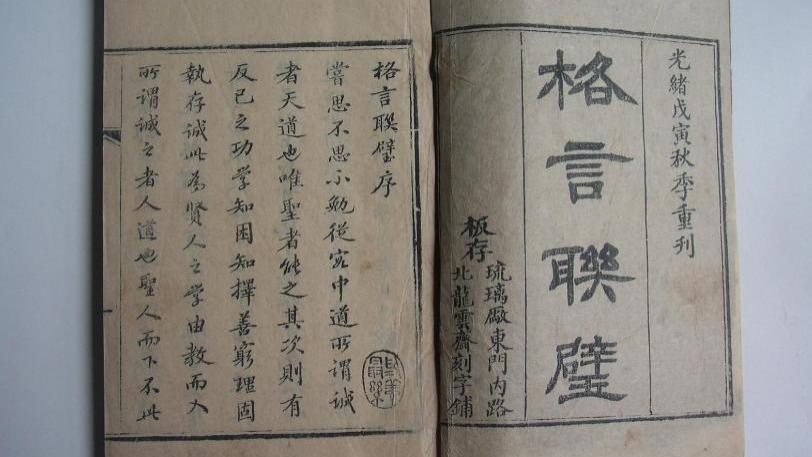 光緒戊寅秋季重刊
格言聯璧
板存
琉璃廠東門內路
北龍雲齋刻字鋪
格言聯璧序
嘗思不思不勉從容中道所謂誠
者天道也唯聖者能之其次則有
反己之功學知困知擇善窮理固
執存誠此為賢人之學由教而入
所謂誠之者人道也聖人而下不此